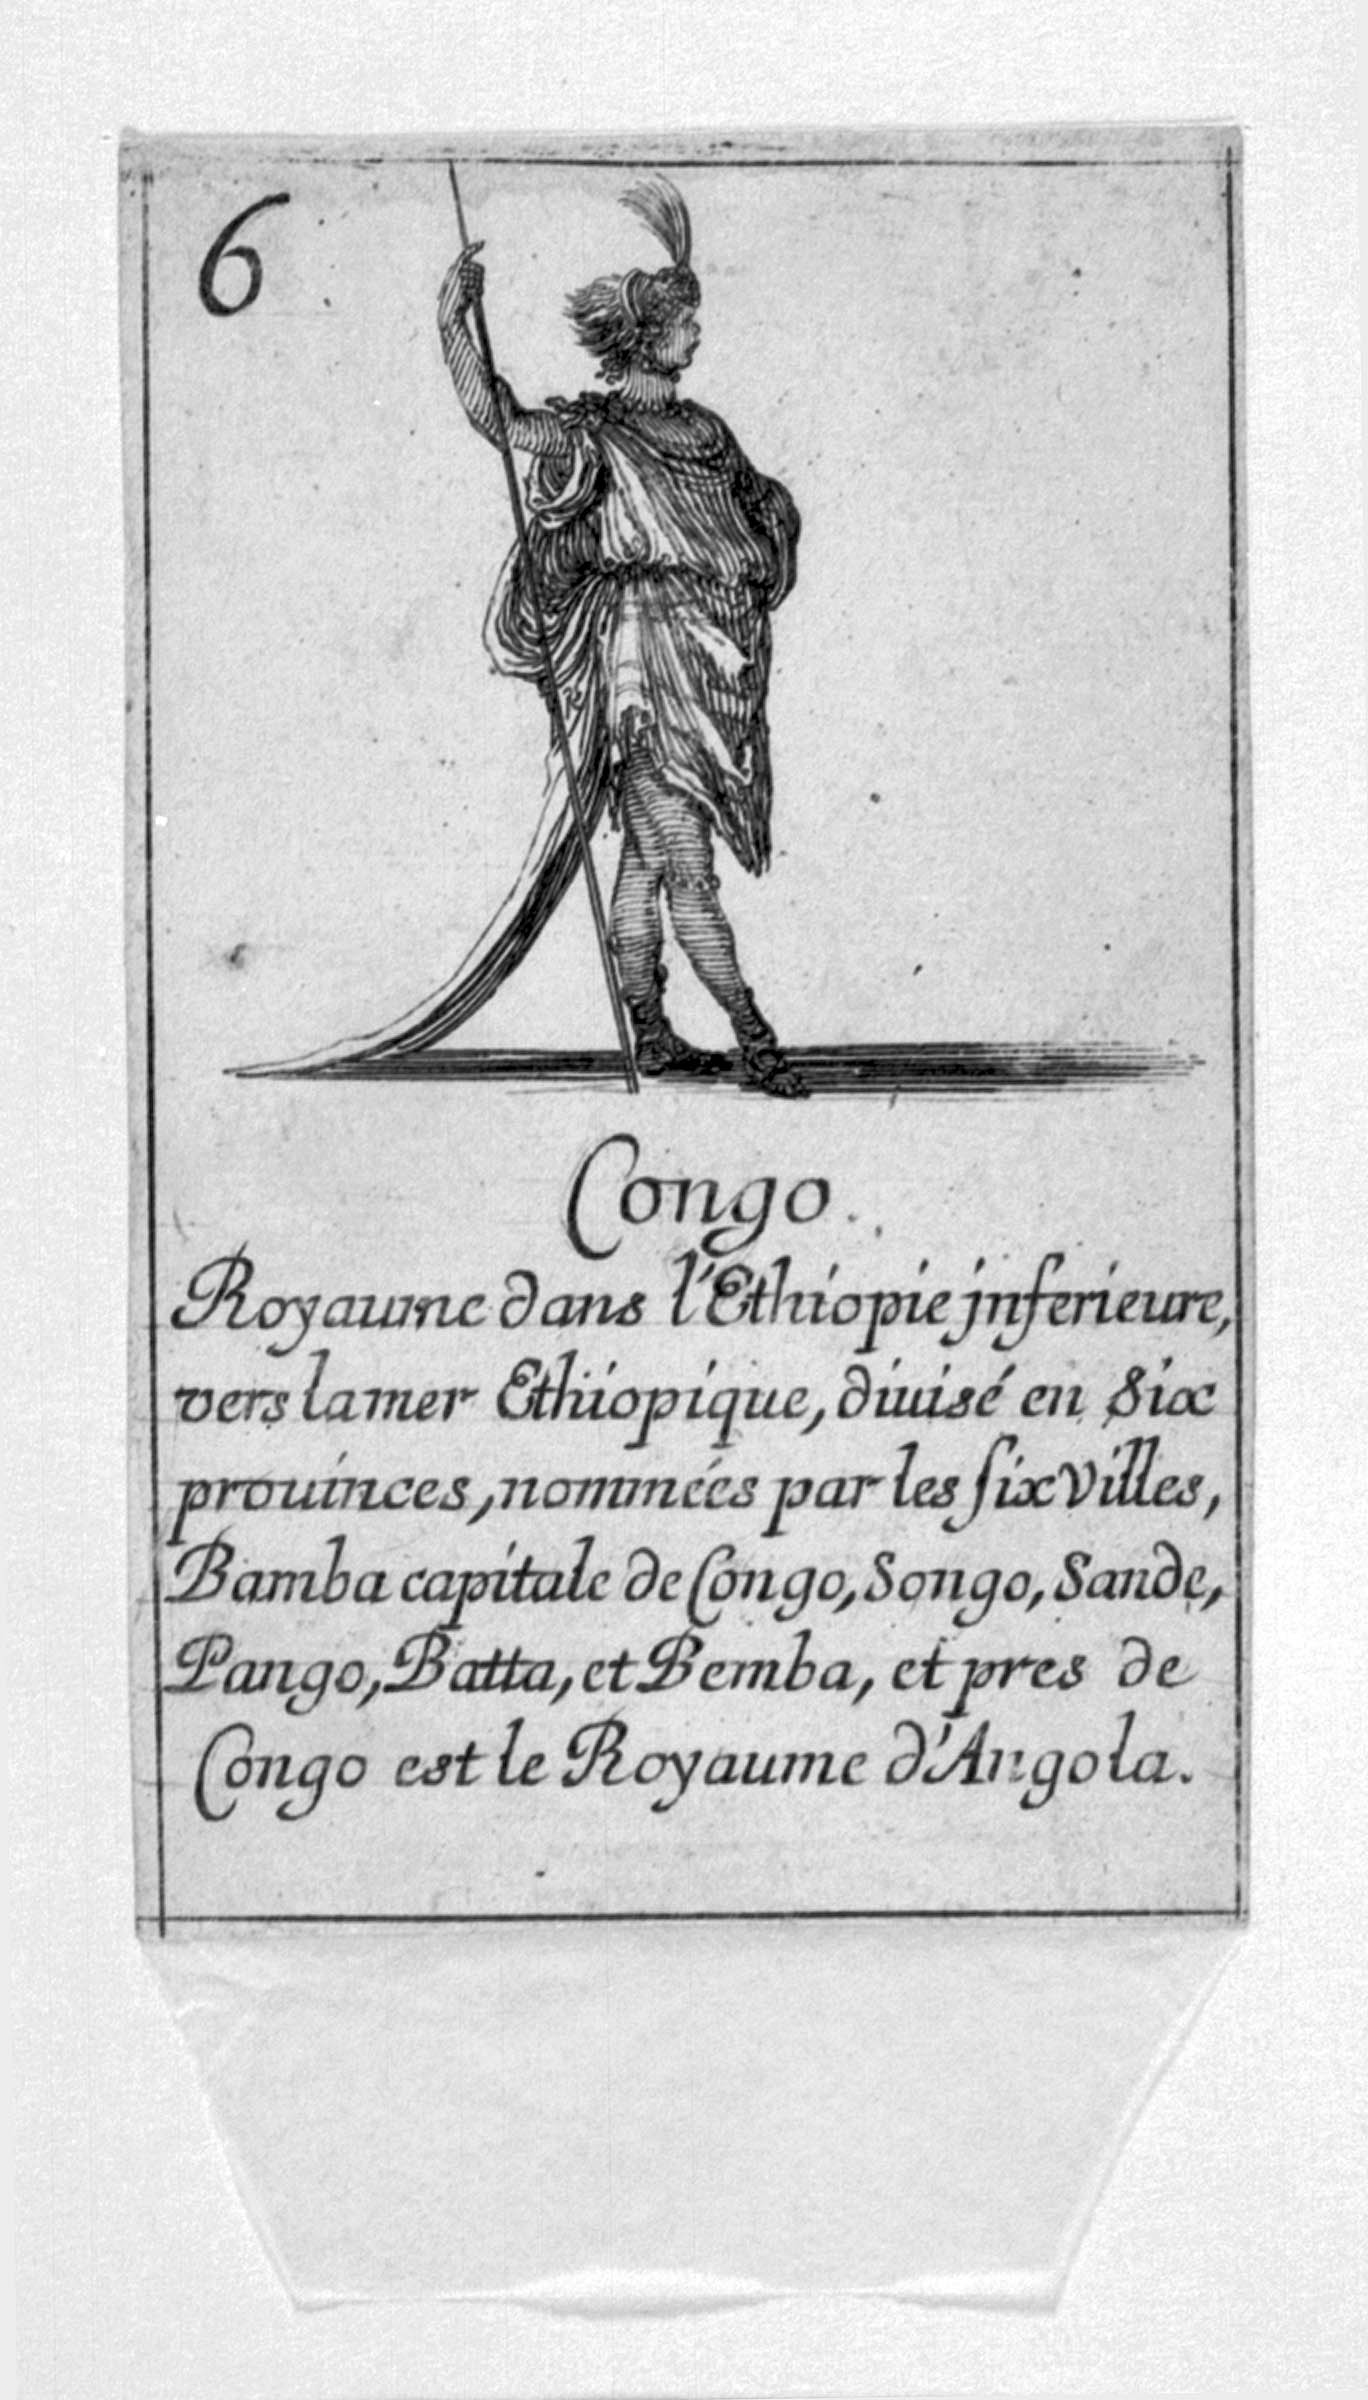 6
Congo.
Royaume dans l'Ethiopie jnferieure,
vers la mer Ethiopique, diuisé en six
prouinces, nommées par les ſix Villes,
Bamba capitale de Congo, Songo, Sande,
Pango, Batta, et Bemba, et pres de
Congo est le Royaume d'Angola.